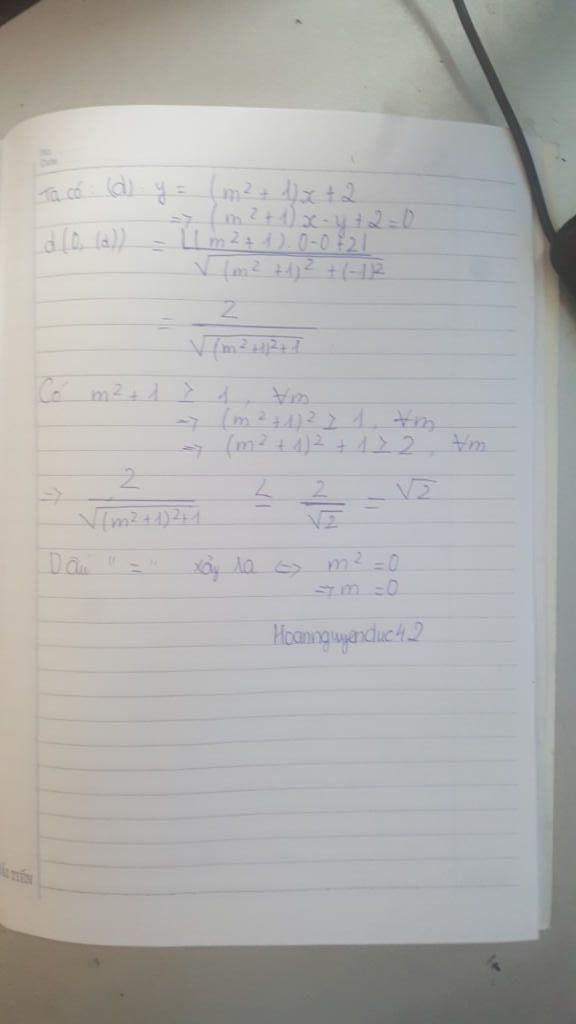 No.
Date
Ta có: (d): y = (m² + 1)x + 2
=> (m² + 1)x - y + 2 = 0
d(0, (d)) = |(m² + 1).0 - 0 + 2| / √((m² + 1)² + (-1)²
= 2 / √((m² + 1)² + 1
Có m² + 1 ≥ 1, ∀m
=> (m² + 1)² ≥ 1, ∀m
=> (m² + 1)² + 1 ≥ 2, ∀m
=> 2 / √((m² + 1)² + 1 ≤ 2 / √2 = √2
Dấu " = " xảy ra <=> m² = 0
=> m = 0
Hoannguyenduc42